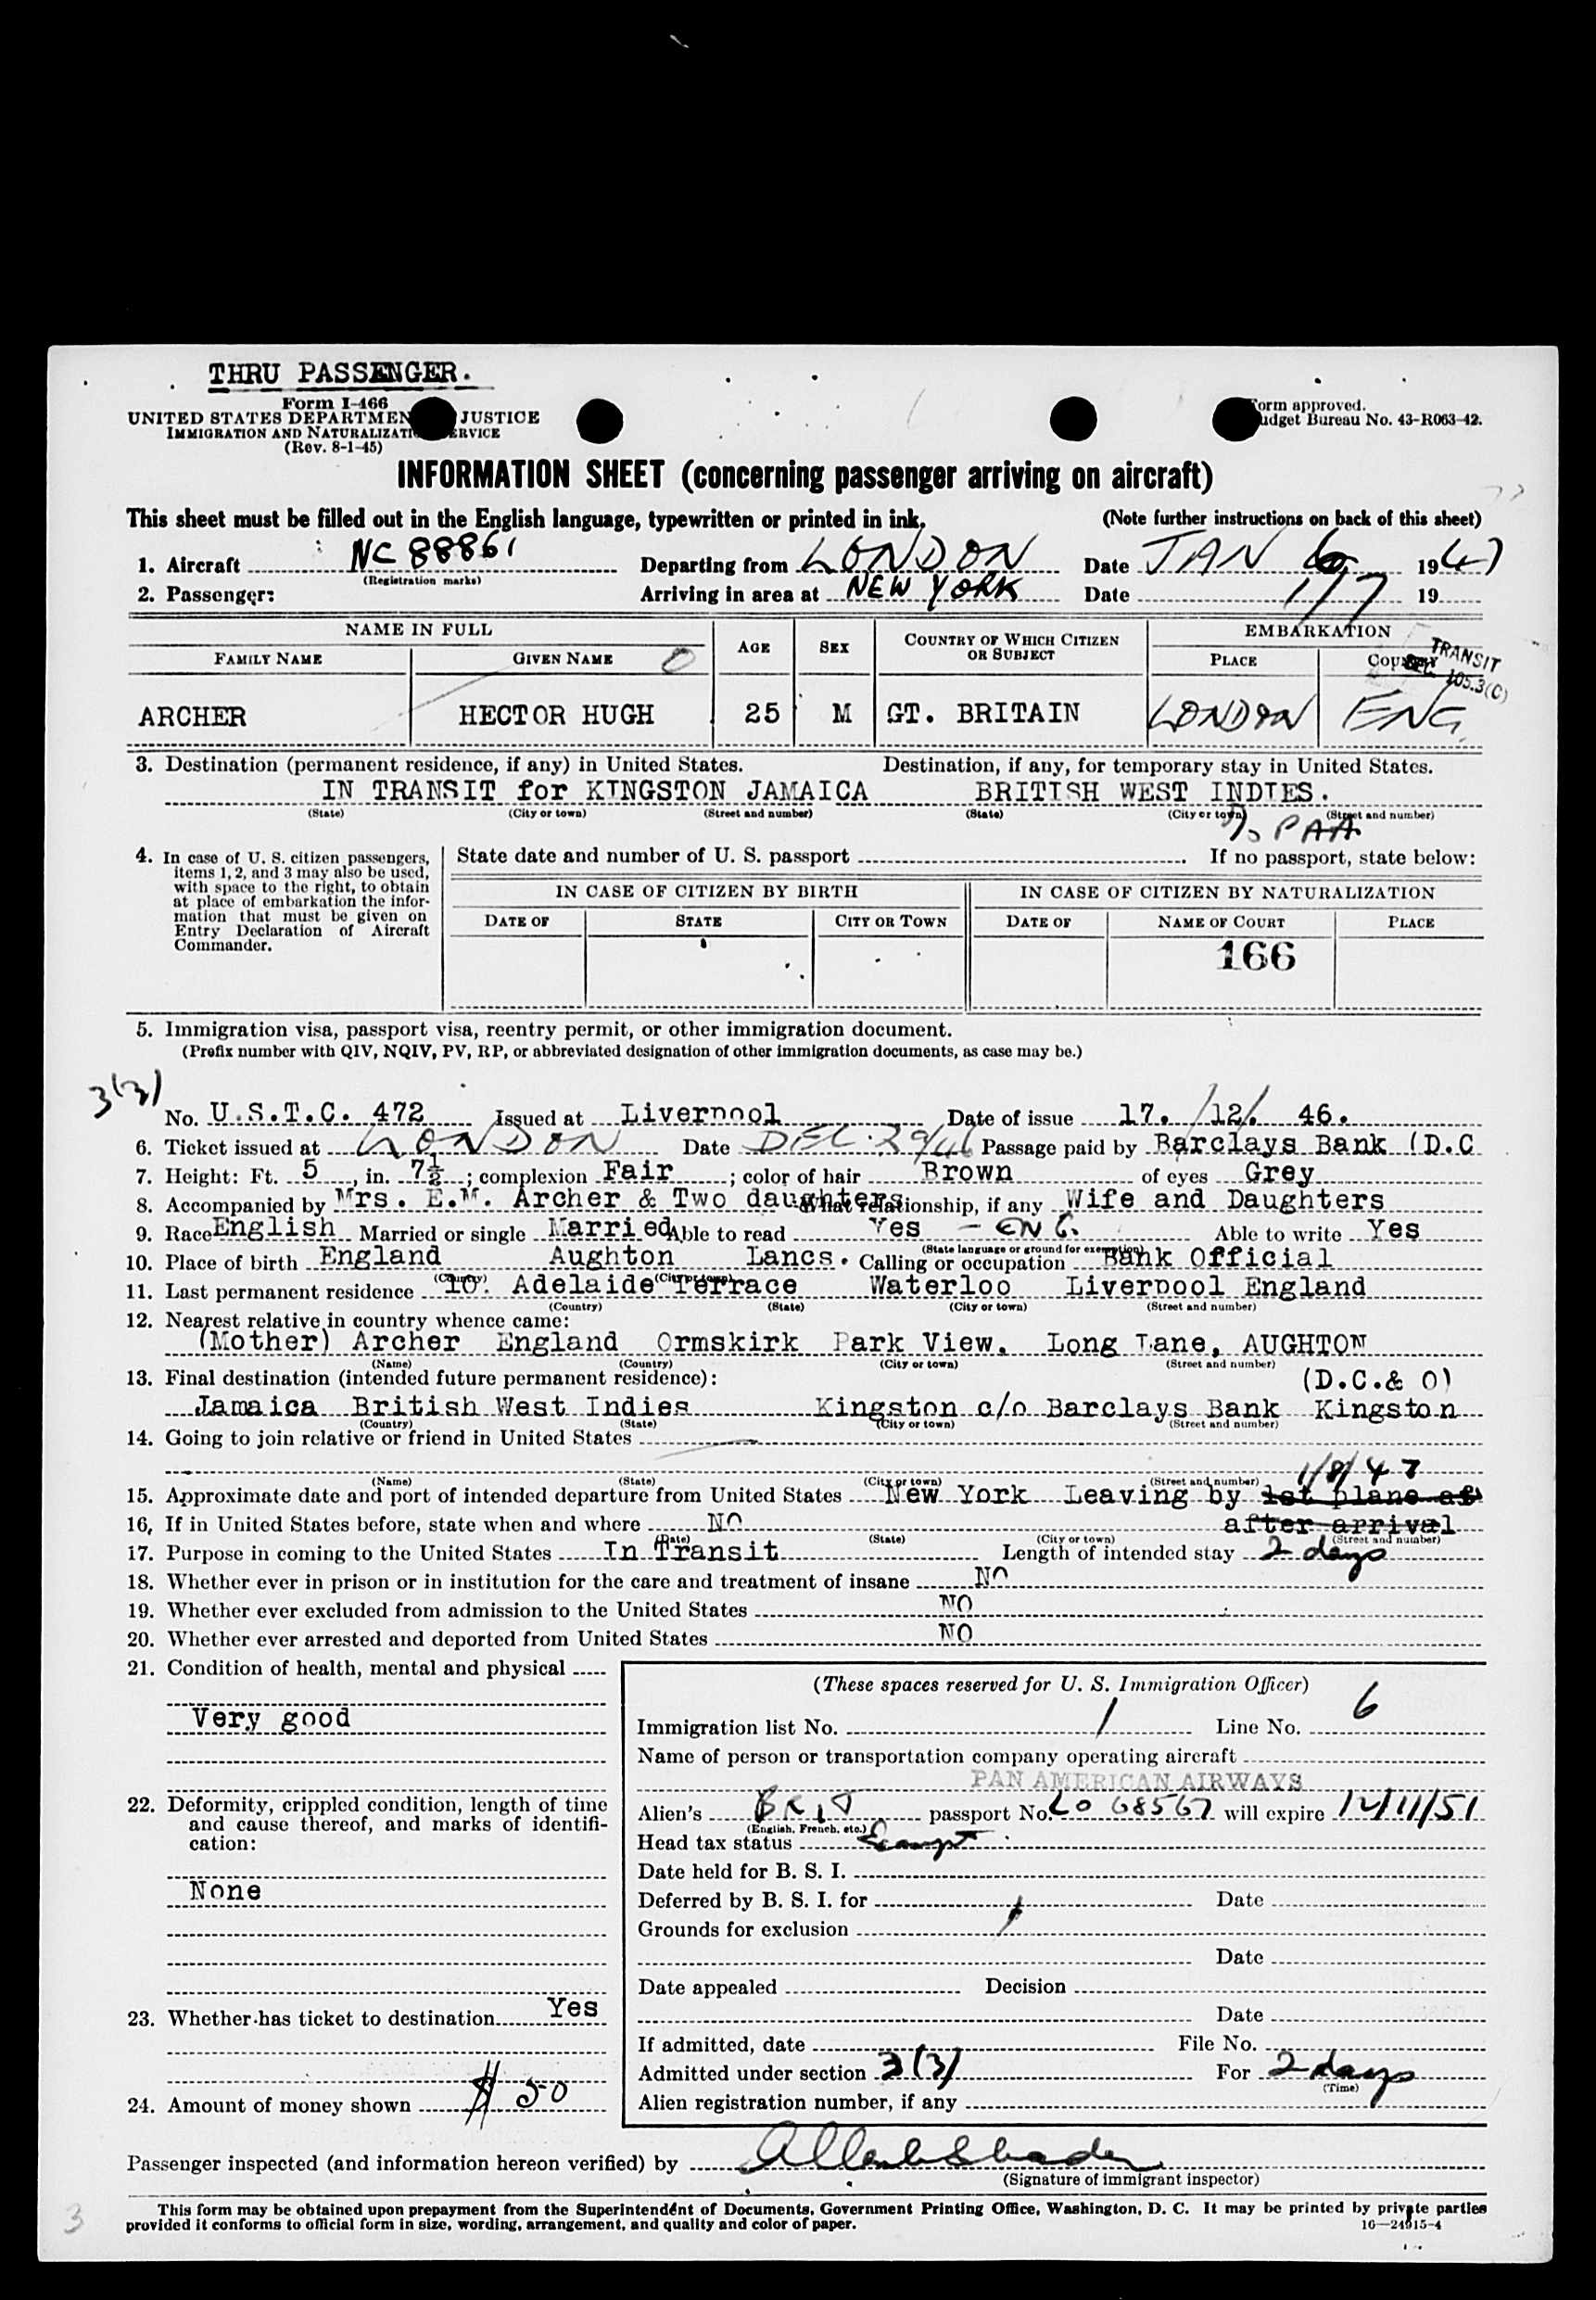 THRU PASSENGER.
Form I-466
UNITED STATES DEPARTMEN JUSTICE
IMMIGRATION AND NATURALIZATI ERVICE
(Rev. 8-1-45)
orm approved.
udget Bureau No. 43-R063-42.
INFORMATION SHEET (concerning passenger arriving on aircraft)
This sheet must be filled out in the English language, typewritten or printed in ink. (Note further instructions on back of this sheet)
1. Aircraft NC 88861 Departing from LONDON Date JAN 6 1947
(Registration marks)
2. Passenger: Arriving in area at NEW YORK Date 1/7 19
NAME IN FULL AGE SEX COUNTRY OF WHICH CITIZEN OR SUBJECT EMBARKATION
FAMILY NAME GIVEN NAME PLACE COUNTRY
TRANSIT
SEC. 105.3(C)
ARCHER HECTOR HUGH 25 M GT. BRITAIN LONDON ENG.
3. Destination (permanent residence, if any) in United States. Destination, if any, for temporary stay in United States.
IN TRANSIT for KINGSTON JAMAICA BRITISH WEST INDIES.
(State) (City or town) (Street and number) (State) (City or town) (Street and number)
PAA
4. In case of U. S. citizen passengers, items 1, 2, and 3 may also be used, with space to the right, to obtain at place of embarkation the information that must be given on Entry Declaration of Aircraft Commander.
State date and number of U. S. passport If no passport, state below:
IN CASE OF CITIZEN BY BIRTH IN CASE OF CITIZEN BY NATURALIZATION
DATE OF STATE CITY OR TOWN DATE OF NAME OF COURT PLACE
166
5. Immigration visa, passport visa, reentry permit, or other immigration document.
(Prefix number with QIV, NQIV, PV, RP, or abbreviated designation of other immigration documents, as case may be.)
3(3)
No. U.S.T.C. 472 Issued at Liverpool Date of issue 17. /12/. 46.
6. Ticket issued at LONDON Date DEC. 29/46 Passage paid by Barclays Bank (D.C
7. Height: Ft. 5, in. 7½; complexion Fair; color of hair Brown of eyes Grey
8. Accompanied by Mrs. E.M. Archer & Two daughters What relationship, if any Wife and Daughters
9. Race English Married or single Married Able to read Yes - ENG. Able to write Yes
(State language or ground for exemption)
10. Place of birth England Aughton Lancs. Calling or occupation Bank Official
(Country) (City or town)
11. Last permanent residence 10. Adelaide Terrace Waterloo Liverpool England
(Country) (State) (City or town) (Street and number)
12. Nearest relative in country whence came:
(Mother) Archer England Ormskirk Park View. Long Lane, AUGHTON
(Name) (Country) (City or town) (Street and number)
13. Final destination (intended future permanent residence): (D.C.& O)
Jamaica British West Indies Kingston c/o Barclays Bank Kingston
(Country) (State) (City or town) (Street and number)
14. Going to join relative or friend in United States
(Name) (State) (City or town) (Street and number) 1/8/47
15. Approximate date and port of intended departure from United States New York Leaving by 1st plane af
16. If in United States before, state when and where NO after arrival
(Date) (State) (City or town) (Street and number)
17. Purpose in coming to the United States In Transit Length of intended stay 2 days
18. Whether ever in prison or in institution for the care and treatment of insane NO
19. Whether ever excluded from admission to the United States NO
20. Whether ever arrested and deported from United States NO
21. Condition of health, mental and physical
Very good
22. Deformity, crippled condition, length of time and cause thereof, and marks of identification:
None
23. Whether has ticket to destination Yes
24. Amount of money shown $ 50
(These spaces reserved for U. S. Immigration Officer)
Immigration list No. 1 Line No. 6
Name of person or transportation company operating aircraft
PAN AMERICAN AIRWAYS
Alien's BRIT passport No. LO 68567 will expire 12/11/51
(English, French, etc.)
Head tax status Exempt
Date held for B. S. I.
Deferred by B. S. I. for Date
Grounds for exclusion
Date
Date appealed Decision
Date
If admitted, date File No.
Admitted under section 3(3) For 2 days
(Time)
Alien registration number, if any
Passenger inspected (and information hereon verified) by
(Signature of immigrant inspector)
This form may be obtained upon prepayment from the Superintendent of Documents, Government Printing Office, Washington, D. C. It may be printed by private parties
provided it conforms to official form in size, wording, arrangement, and quality and color of paper. 16—24915-4
3